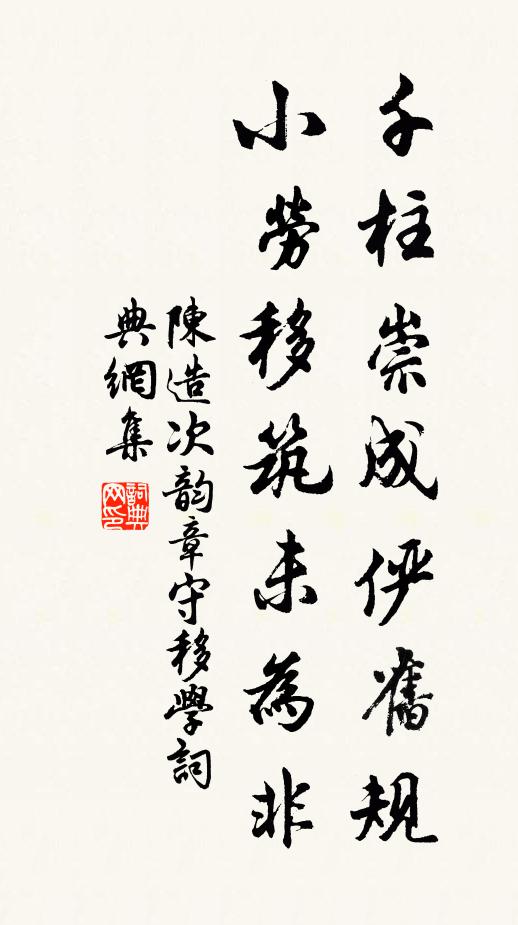 千柱崇成俨舊規
小勞移筑未為非
陳造次韵章守移學詞
典網集
詞典
网印